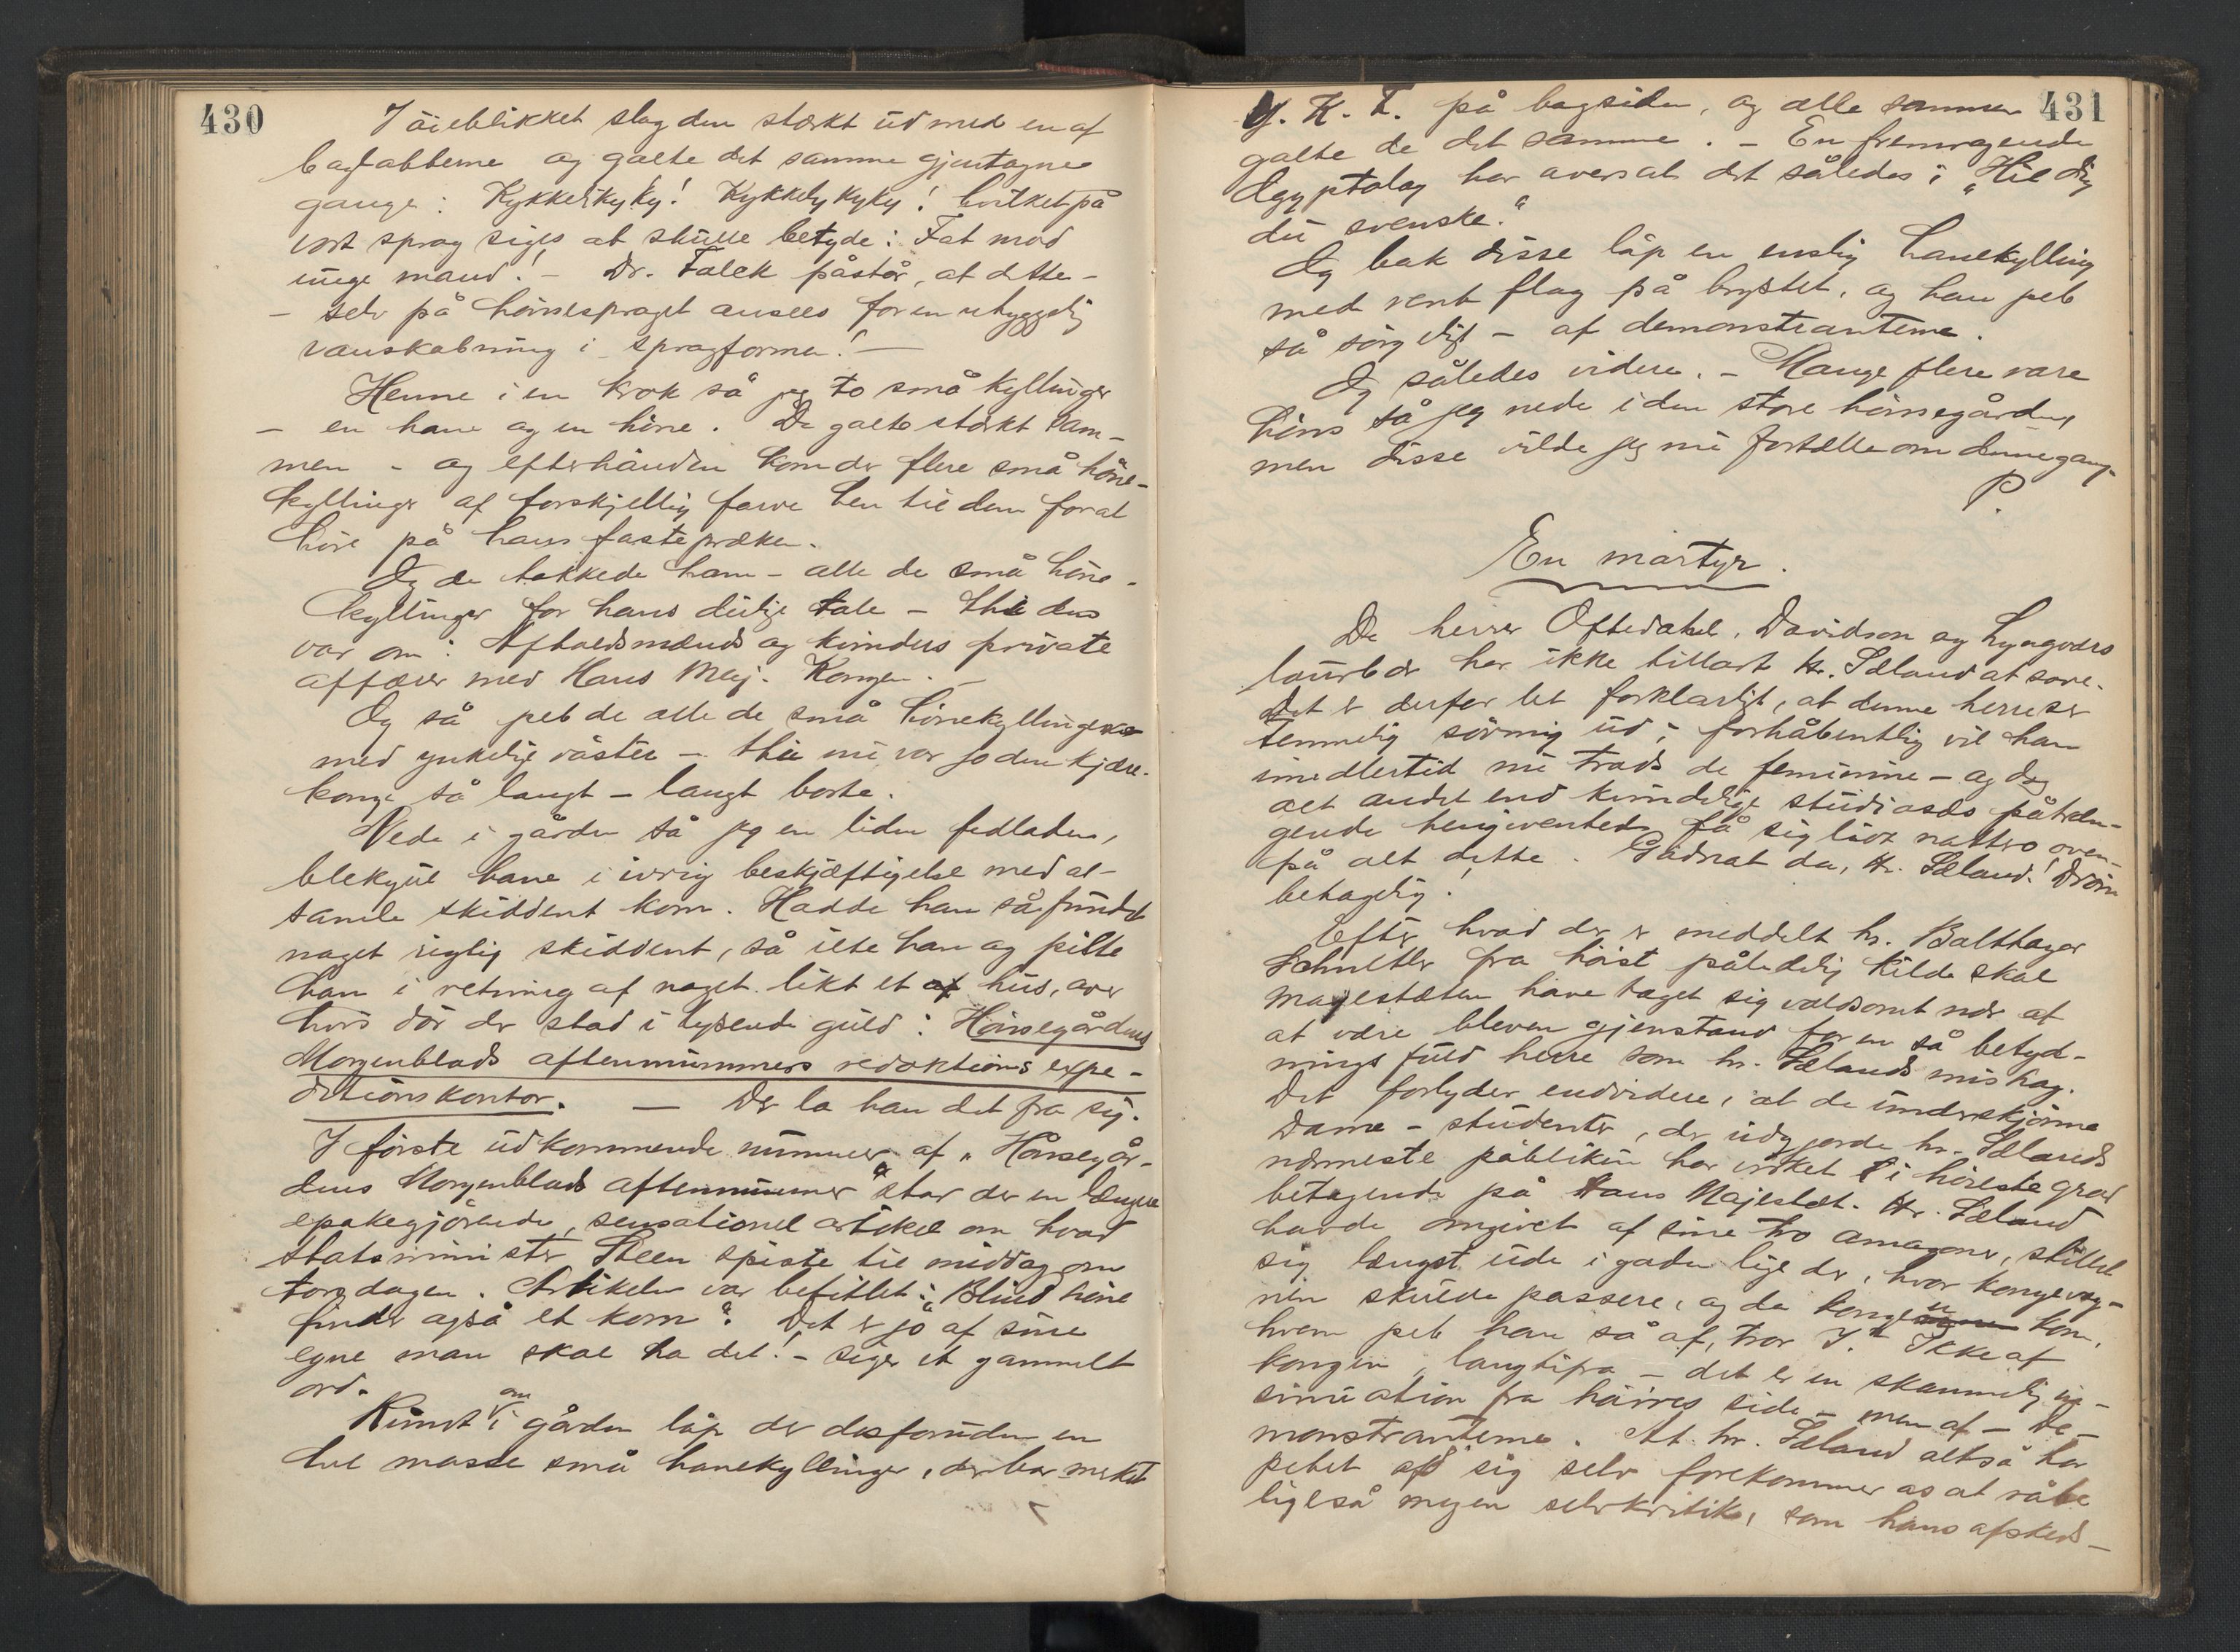 430
I öieblikket slog den stærkt ud med en af
baglabberne og galte det samme gjentagne
gange: Kykkelikyky! Kykkelykyky! hvilket på
vort sprog siges at skulle betyde: Fat mod
unge mand! – Dr. Falck påstår, at dette –
– selv på hönsesproget ansees for en uhyggelig
vanskabning i sprogformen! –
Henne i en krok så jeg to små kyllinger
– en hane og en höne. De galte stærkt sam-
men – og efterhånden kom der flere små höne-
kyllinger af forskjellig farve hen til dem forat
höre på hans fastepræken.
Og de takkede ham – alle de små höne-
kyllinger for hans deilige tale – thi den
var om: Afholdsmænds og kvinders private
affærer med Hans Maj. Kongen. –
Og så peb de alle de små hönekyllingerne
med ynkelige röster – thi nu var jo den kjære
konge så langt – langt borte.
Nede i gården så jeg en liden fedladen,
blekgul hane i ivrig beskjæftigelse med at
samle skiddent korn. Hadde han så fundet
noget rigtig skiddent, så ilte han og pilte
han i retning af noget likt et hus, over
hvis dör der stod i lysende guld: Hönsegårdens
Morgenblads aftennummers redaktions expe-
ditionskontor. — Der la han det fra sig.
I förste udkommende nummer af „Hönsegår-
dens Morgenblads aftennummer" står der en længere
epokegjörende, sensationel artikel om hvad
statsminister Steen spiste til middag om
torsdagen. Artikelen var betitlet: „Blind höne
finder også et korn". Det er jo af sine
egne man skal ha det! – siger et gammelt
ord.
Rundt om i gården löp der desforuden en
hel masse små hanekyllinger, der bar merket
431
Y. K. T. på bagsiden, og alle sammen
galte de det samme. – En fremragende
Ægyptolog har oversat det således: „Hil dig
du svenske."
Og bak disse löp en enslig hanekylling
med rent flag på brystet, og han peb
så sörgeligt – af demonstranterne.
Og således videre. – Mange flere rare
höns så jeg nede i den store hönsegården,
men disse vilde jeg nu fortælle om denne gang.
P.
En martyr.
De herrer Oftedahl, Davidson og Lyngværs
laurbær har ikke tilladt hr. Sæland at sove.
Det er derfor let forklarligt, at denne herre ser
temmelig sövnig ud; forhåbentlig vil han
imedlertid nu trods de feminine – og dog
alt andet end kvindelige studiosos påtræn-
gende hengivenhed få sig livt nattro oven-
på alt dette. Godnat da, hr. Sæland! Dröm
behagelig!
Efter hvad der er meddelt hr. Balthazar
Schnitler fra höist pålidelig kilde skal
majestæten have taget sig voldsomt nær af
at være bleven gjenstand for en så betyd-
nings fuld herre som hr. Sælands mishag.
Det forlyder endvidere, at de underskjönne
dame-studenter, der udgjorde hr. Sælands
nærmeste publikum har virket i höieste grad
betagende på Hans Majestæt. Hr. Sæland
havde omgivet af sine tro amazoner, stillet
sig længst ude i gaden lige der, hvor kongevog-
nen skulde passere, og da kongen kom,
hvem peb han så af, tror I? Ikke af
kongen, langtifra – det er en skammelig in-
sinuation fra höires side – men af – De-
monstranterne. At hr. Sæland altså har
pebet af sig selv forekommer os at råbe
ligeså megen selvkritik, som hans afskeds-